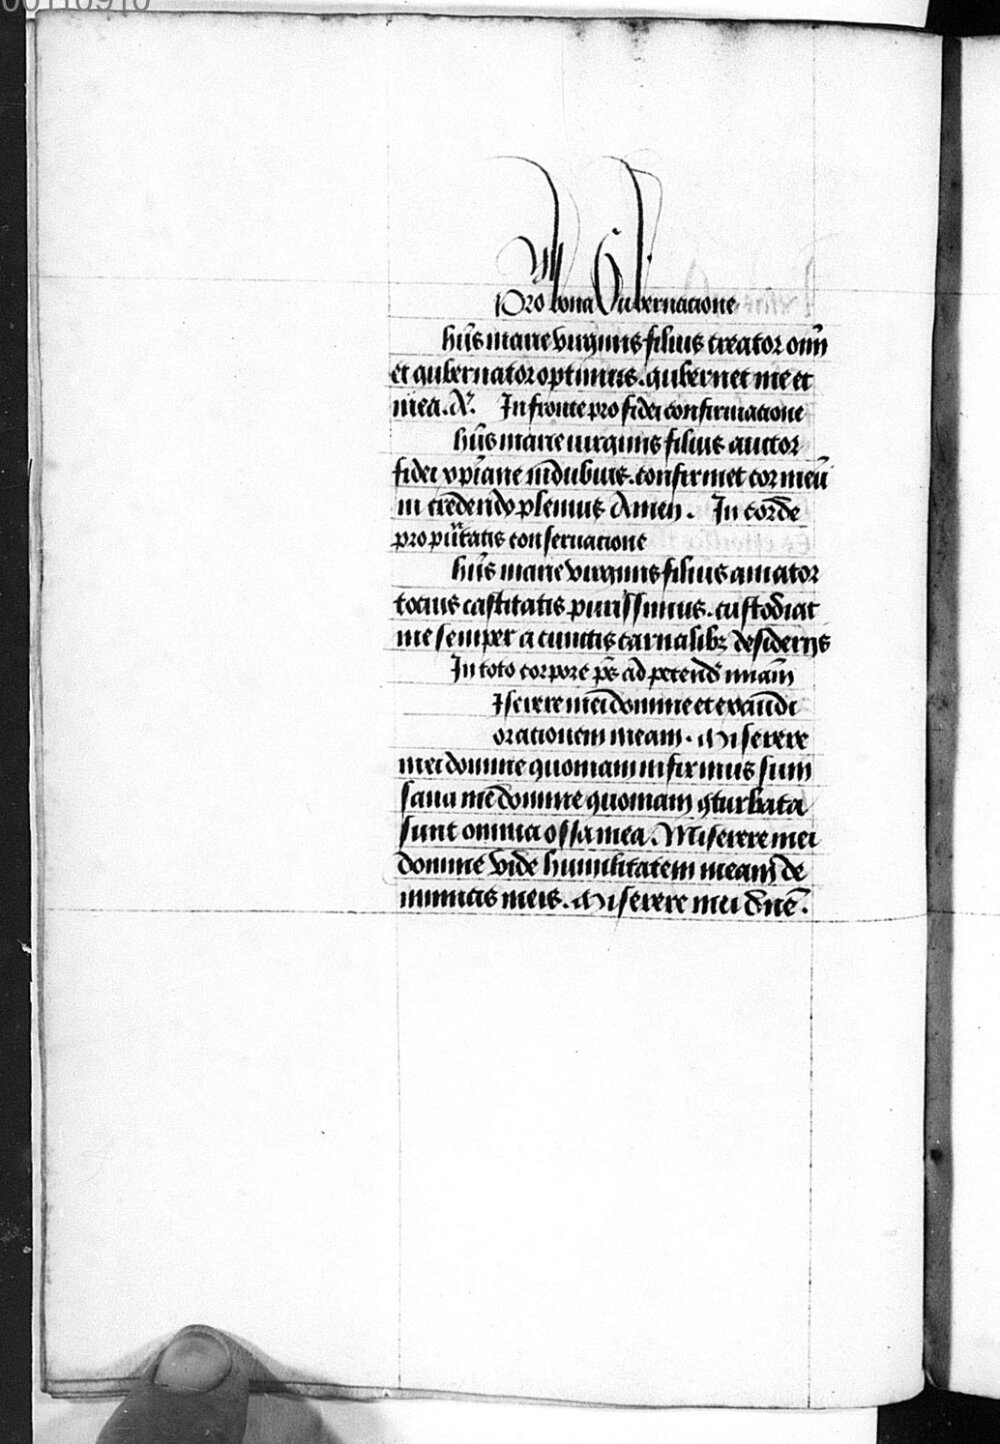 00110910
Pro bona Gubernatione
hūs marie virginis filius creator oīm
et gubernator optimus. gubernet me et
mea. A?. In fronte pro fidei confirmatione
hūs marie virginis filius auctor
fidei xp̄iane īndubius. confirmet cor meū
in credendo plenius Amen. In corde
pro pūritatis conseruatione
hūs marie virginis filius amator
tocius castitatis purissimus. custodiat
me semper a cunctis carnalibꝫ desiderijs
In toto corpore p̄s ad petend̄ miām
Iserere mei domine et exaudi
orationem meam. Miserere
mei domine quoniam infirmus sum
sana me domine quoniam ꝯturbata
sunt omnia ossa mea. Miserere mei
domine vide humilitatem meam de
inimicis meis. Miserere mei dn̄e.